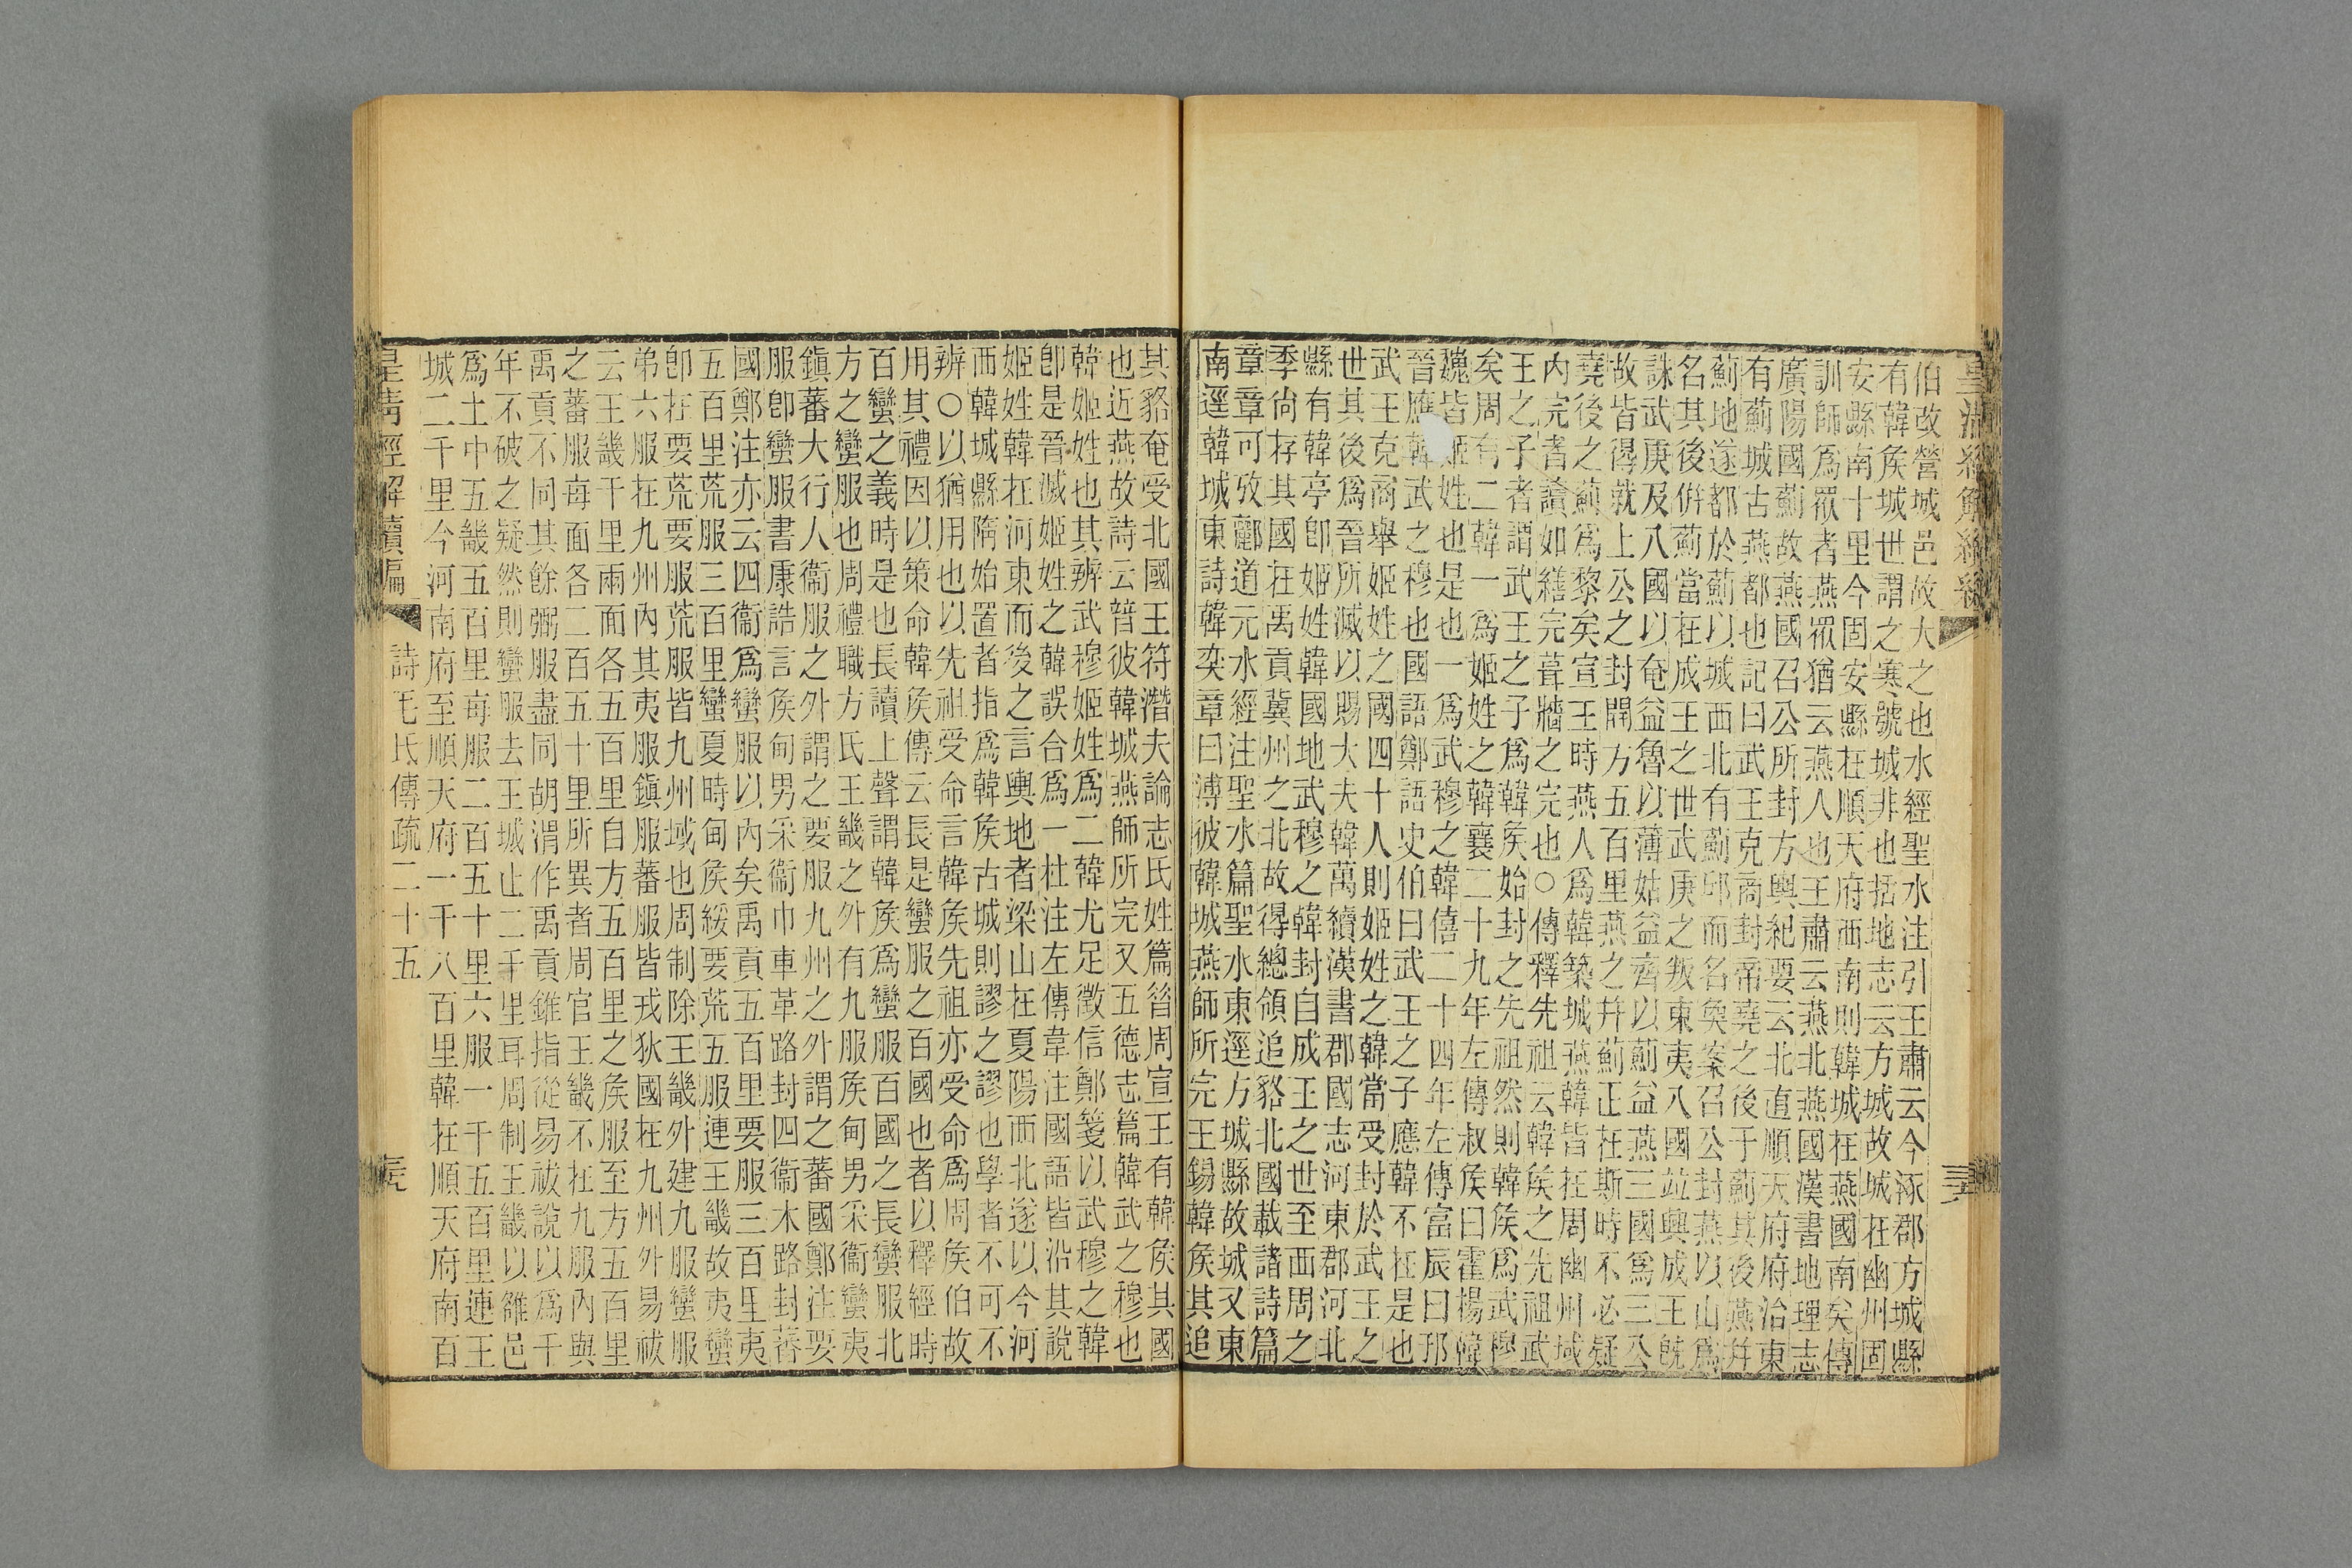 伯改營城邑故大之也水經聖水注引王肅云今涿郡方城縣
有韓矦城世謂之寒號城非也括地志云方城故城在幽州固
安縣南十里今固安縣在順天府西南則韓城在燕國南矣傳
訓師爲眾者燕眾猶云燕人也王肅云燕北燕國漢書地理志
廣陽國薊故燕國召公所封方輿紀要云北直順天府府治東
有薊城古燕都也記曰武王克商封帝堯之後于薊其後燕并
薊地遂都於薊以城西北有薊邱而名矣案召公封燕以山爲
名其後併薊當在成王之世武庚之叛東夷八國竝興成王既
誅武庚及八國以奄益魯以薄姑益齊以薊益燕三國爲三公
故皆得就上公之封開方五百里燕之并薊正在斯時不必疑
堯後之薊爲黎矣宣王時燕人爲韓築城燕韓皆在周幽州域
內完者讀如繕完葺牆之完也○傳釋先祖云韓矦之先祖武
王之子者謂武王之子爲韓矦始封之先祖然則韓矦爲武穆
矣周有二韓一爲姬姓之韓襄二十九年左傳叔矦曰霍揚韓
魏皆姬姓也是也一爲武穆之韓僖二十四年左傳富辰曰邘
晉應韓武之穆也國語鄭語史伯曰武王之子應韓不在是也
武王克商舉姬姓之國四十人則姬姓之韓當受封於武王之
世其後爲晉所滅以賜大夫韓萬續漢書郡國志河東郡河北
縣有韓亭卽姬姓韓國地武穆之韓封自成王之世至西周之
季尙存其國在禹貢冀州之北故得總領追貉北國載諸詩篇
章章可攷酈道元水經注聖水篇聖水東逕方城縣故城又東
南逕韓城東詩韓奕章曰溥彼韓城燕師所完王錫韓矦其追
其貉奄受北國王符潛夫論志氏姓篇昔周宣王有韓矦其國
也近燕故詩云普彼韓城燕師所完又五德志篇韓武之穆也
韓姬姓也其辨武穆姬姓爲二韓尤足徵信鄭箋以武穆之韓
卽是晉滅姬姓之韓誤合爲一杜注左傳韋注國語皆沿其說
姬姓韓在河東而後之言輿地者梁山在夏陽西北遂以今河
西韓城縣隋始置者指爲韓矦古城則謬之謬也學者不可不
辨○以猶用也以先祖受命言韓矦先祖亦受命爲周矦伯故
用其禮因以策命韓矦傳云長是蠻服之百國也者以釋經時
百蠻之義時是也長讀上聲謂韓矦爲蠻服百國之長蠻服北
方之蠻服也周禮職方氏王畿之外有九服矦甸男采衞蠻夷
鎭蕃大行人衞服之外謂之要服九州之外謂之蕃國鄭注要
服卽蠻服書康誥言矦甸男采衞巾車革路封四衞木路封蕃
國鄭注亦云四衞爲蠻服以內矣禹貢五百里要服三百里夷
五百里荒服三百里蠻夏時甸矦綏要荒五服連王畿故夷蠻
卽在要荒要服荒服皆九州域也周制除王畿外建九服蠻服
弟六服在九州內其夷服鎭服蕃服皆戎狄國在九州外易祓
云王畿千里兩面各五百里自方五百里之矦服至方五百里
之蕃服每面各二百五十里所異者周官王畿不在九服內與
禹貢不同其餘弼服盡同胡渭作禹貢錐指從易祓說以爲千
年不破之疑然則蠻服去王城止二千里耳周制王畿以雒邑
爲土中五畿五百里每服二百五十里六服一千五百里連王
城二千里今河南府至順天府一千八百里韓在順天府南百
皇淸經解續編
詩毛氏傳疏二十五